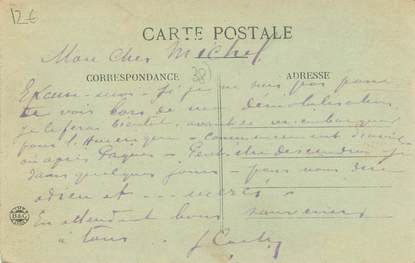 12€
CARTE POSTALE
Mon cher Michel
38
CORRESPONDANCE
ADRESSE
Excuse-moi si je ne suis pas passé
te voir lors de ma démobilisation
Je le ferai bientôt avant de m'embarquer
pour l'Amérique - Commencement
ou après Pâques - Peut-être descendrai je
dans quelques jours - pour vous dire
adieu et
En attendant bons souvenirs
à tous
B&G